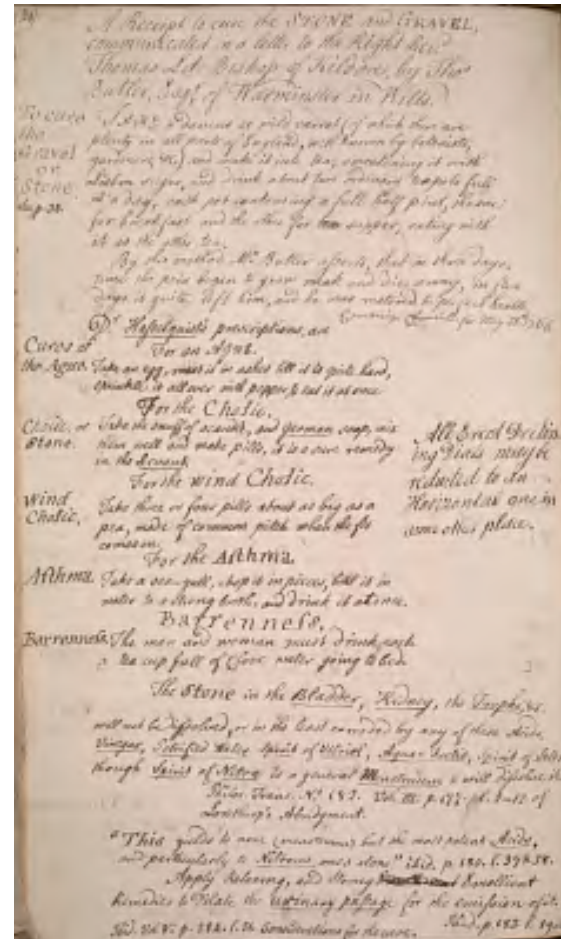 A Receipt to cure the STONE and GRAVEL,
communicated in a letter to the Right Revd
Thomas Ld Bishop of Kildare, by Thos
Butler, Esqr of Warminster in Wilts.
To cure
the
Gravel
or
Stone.
or wild carrot (of which there are
plenty in all parts of England, well known by botanists,
gardeners, &c) and make it into tea, sweetening it with
Lisbon sugar, and drink about two ordinary teapots full
a day, each pot containing a full half pint, the one
for breakfast and the other for supper, eating with
it as the other tea.
By this method Mr Butler asserts, that in three days
time the pain began to grow weak and die away, in five
days it quite left him, and he was restored to perfect health.
for May 1766
Dr Hasselquist's prescriptions, are
For an Ague.
Cures of
the Ague.
Take an egg, roast it in ashes till it is quite hard,
sprinkle it all over with pepper, & eat it at once
For the Cholic.
Cholic, or
Stone.
Take the snuff of and german soap, mix
them well and make pills, it is a sure remedy
in the
For the wind Cholic.
Wind
Cholic,
Take three or four pills about as big as a
pea, made of common pitch when the fit
comes on.
All Erect Declin
ing Dials may be
reduced to an
Horizontal one in
some other place.
For the Asthma.
Asthma.
Take a sea-gull, chop it in pieces, boil it in
water to a strong broth, and drink it at once.
Barrenness.
Barrenness.
The man and woman must drink each
a tea cup full of Clove water going to bed
The Stone in the Bladder, Kidney, the &c.
will not be dissolved, or in the least corroded by any of these Acids,
Vinegar, Water, Spirit of Vitriol, Aqua-fortis, Spirit of
though Spirit of Nitre is a general Menstruum & will dissolve it
Philos. Trans. No Vol. III. p.
Lowthorp's Abridgment.
"This yields to none (menstruum) but the most potent Acids,
and particularly to Nitrous ones alone" ibid. p. 180.
Apply Relaxing, and Emollient
Remedies to Dilate the urinary passage for the emission of it.
Ibid. p. 182
Ibid. Considerations for the cure.